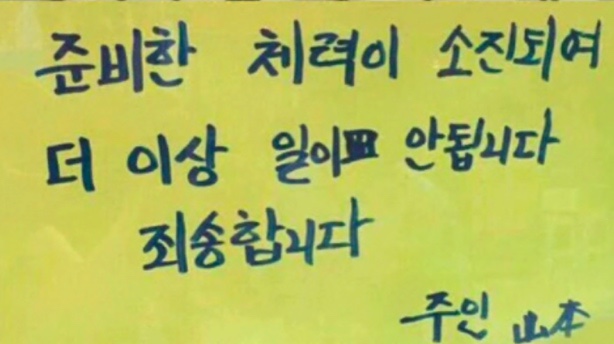 준비한 체력이 소진되여
더 이상 일이 안됩니다
죄송합니다
주인 山本